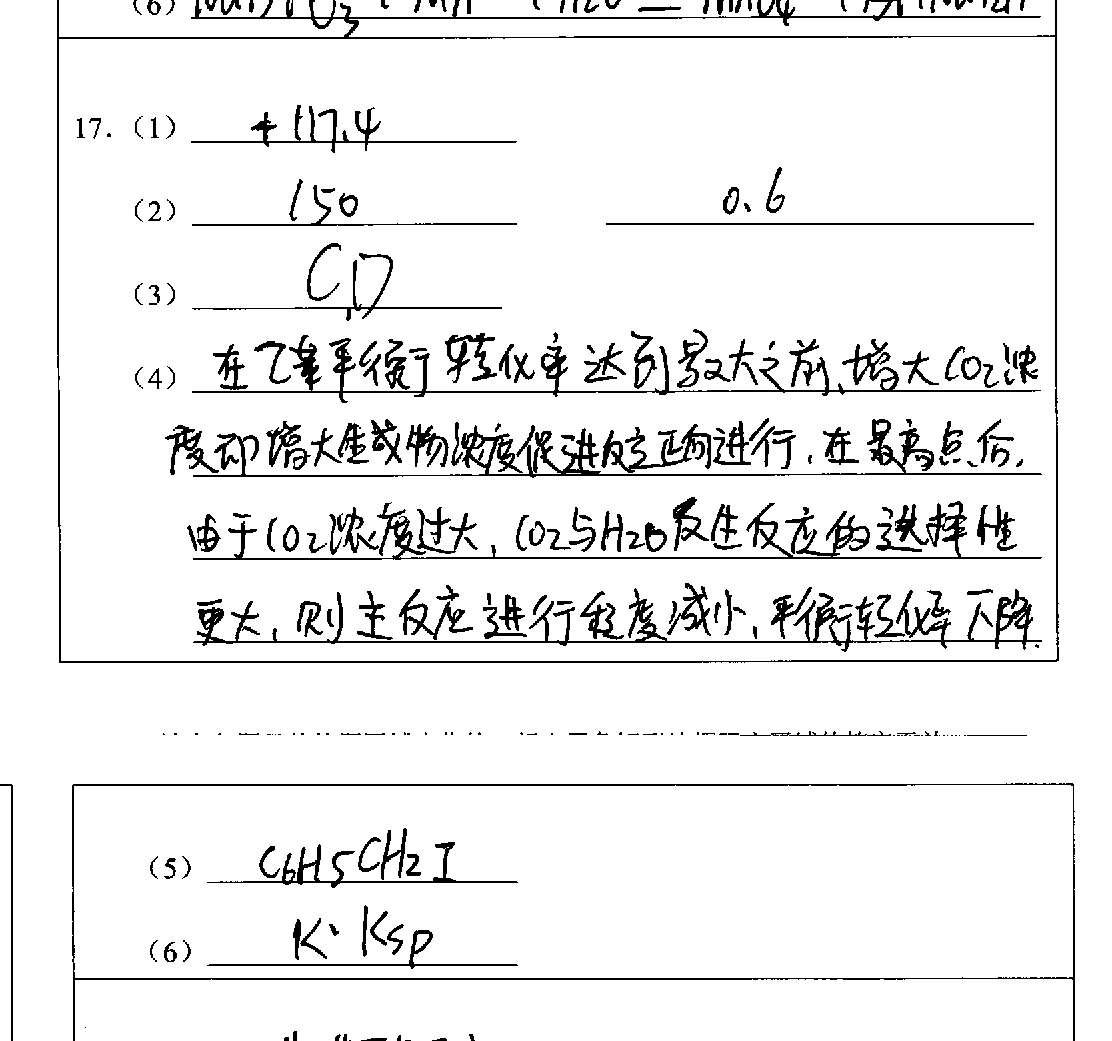 (6)
17. (1) +117.4
(2) 150 0.6
(3) C,D
(4) 在乙苯平衡转化率达到最大之前,增大CO2浓
度即增大生成物浓度促进反应正向进行,在最高点后,
由于CO2浓度过大,CO2与H2O发生反应的选择性
更大,则主反应进行程度减小,平衡转化率下降.
(5) C6H5CH2I
(6) K·Ksp